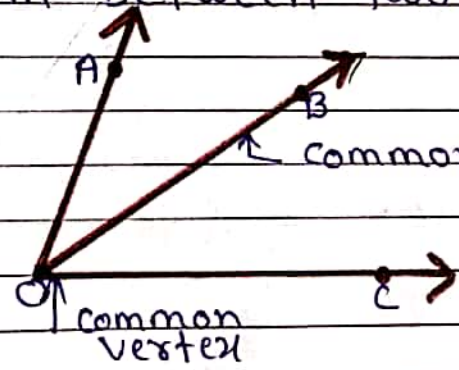 A
B
commo
O
C
common
vertex